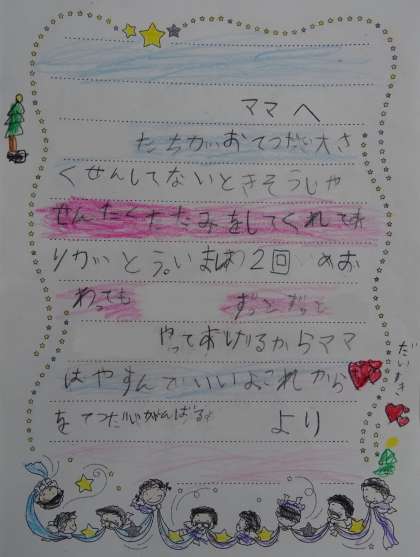 ママへ
たちがおてつだい大さ
くせんしてないときそうじや
せんたくたたみをしてくれてあ
りがとう。いままわ2回
わっても
ずっとずっと
やってあげるからママ
はやすんでいいよこれから
をてつだいがんばるね
より
だいすき